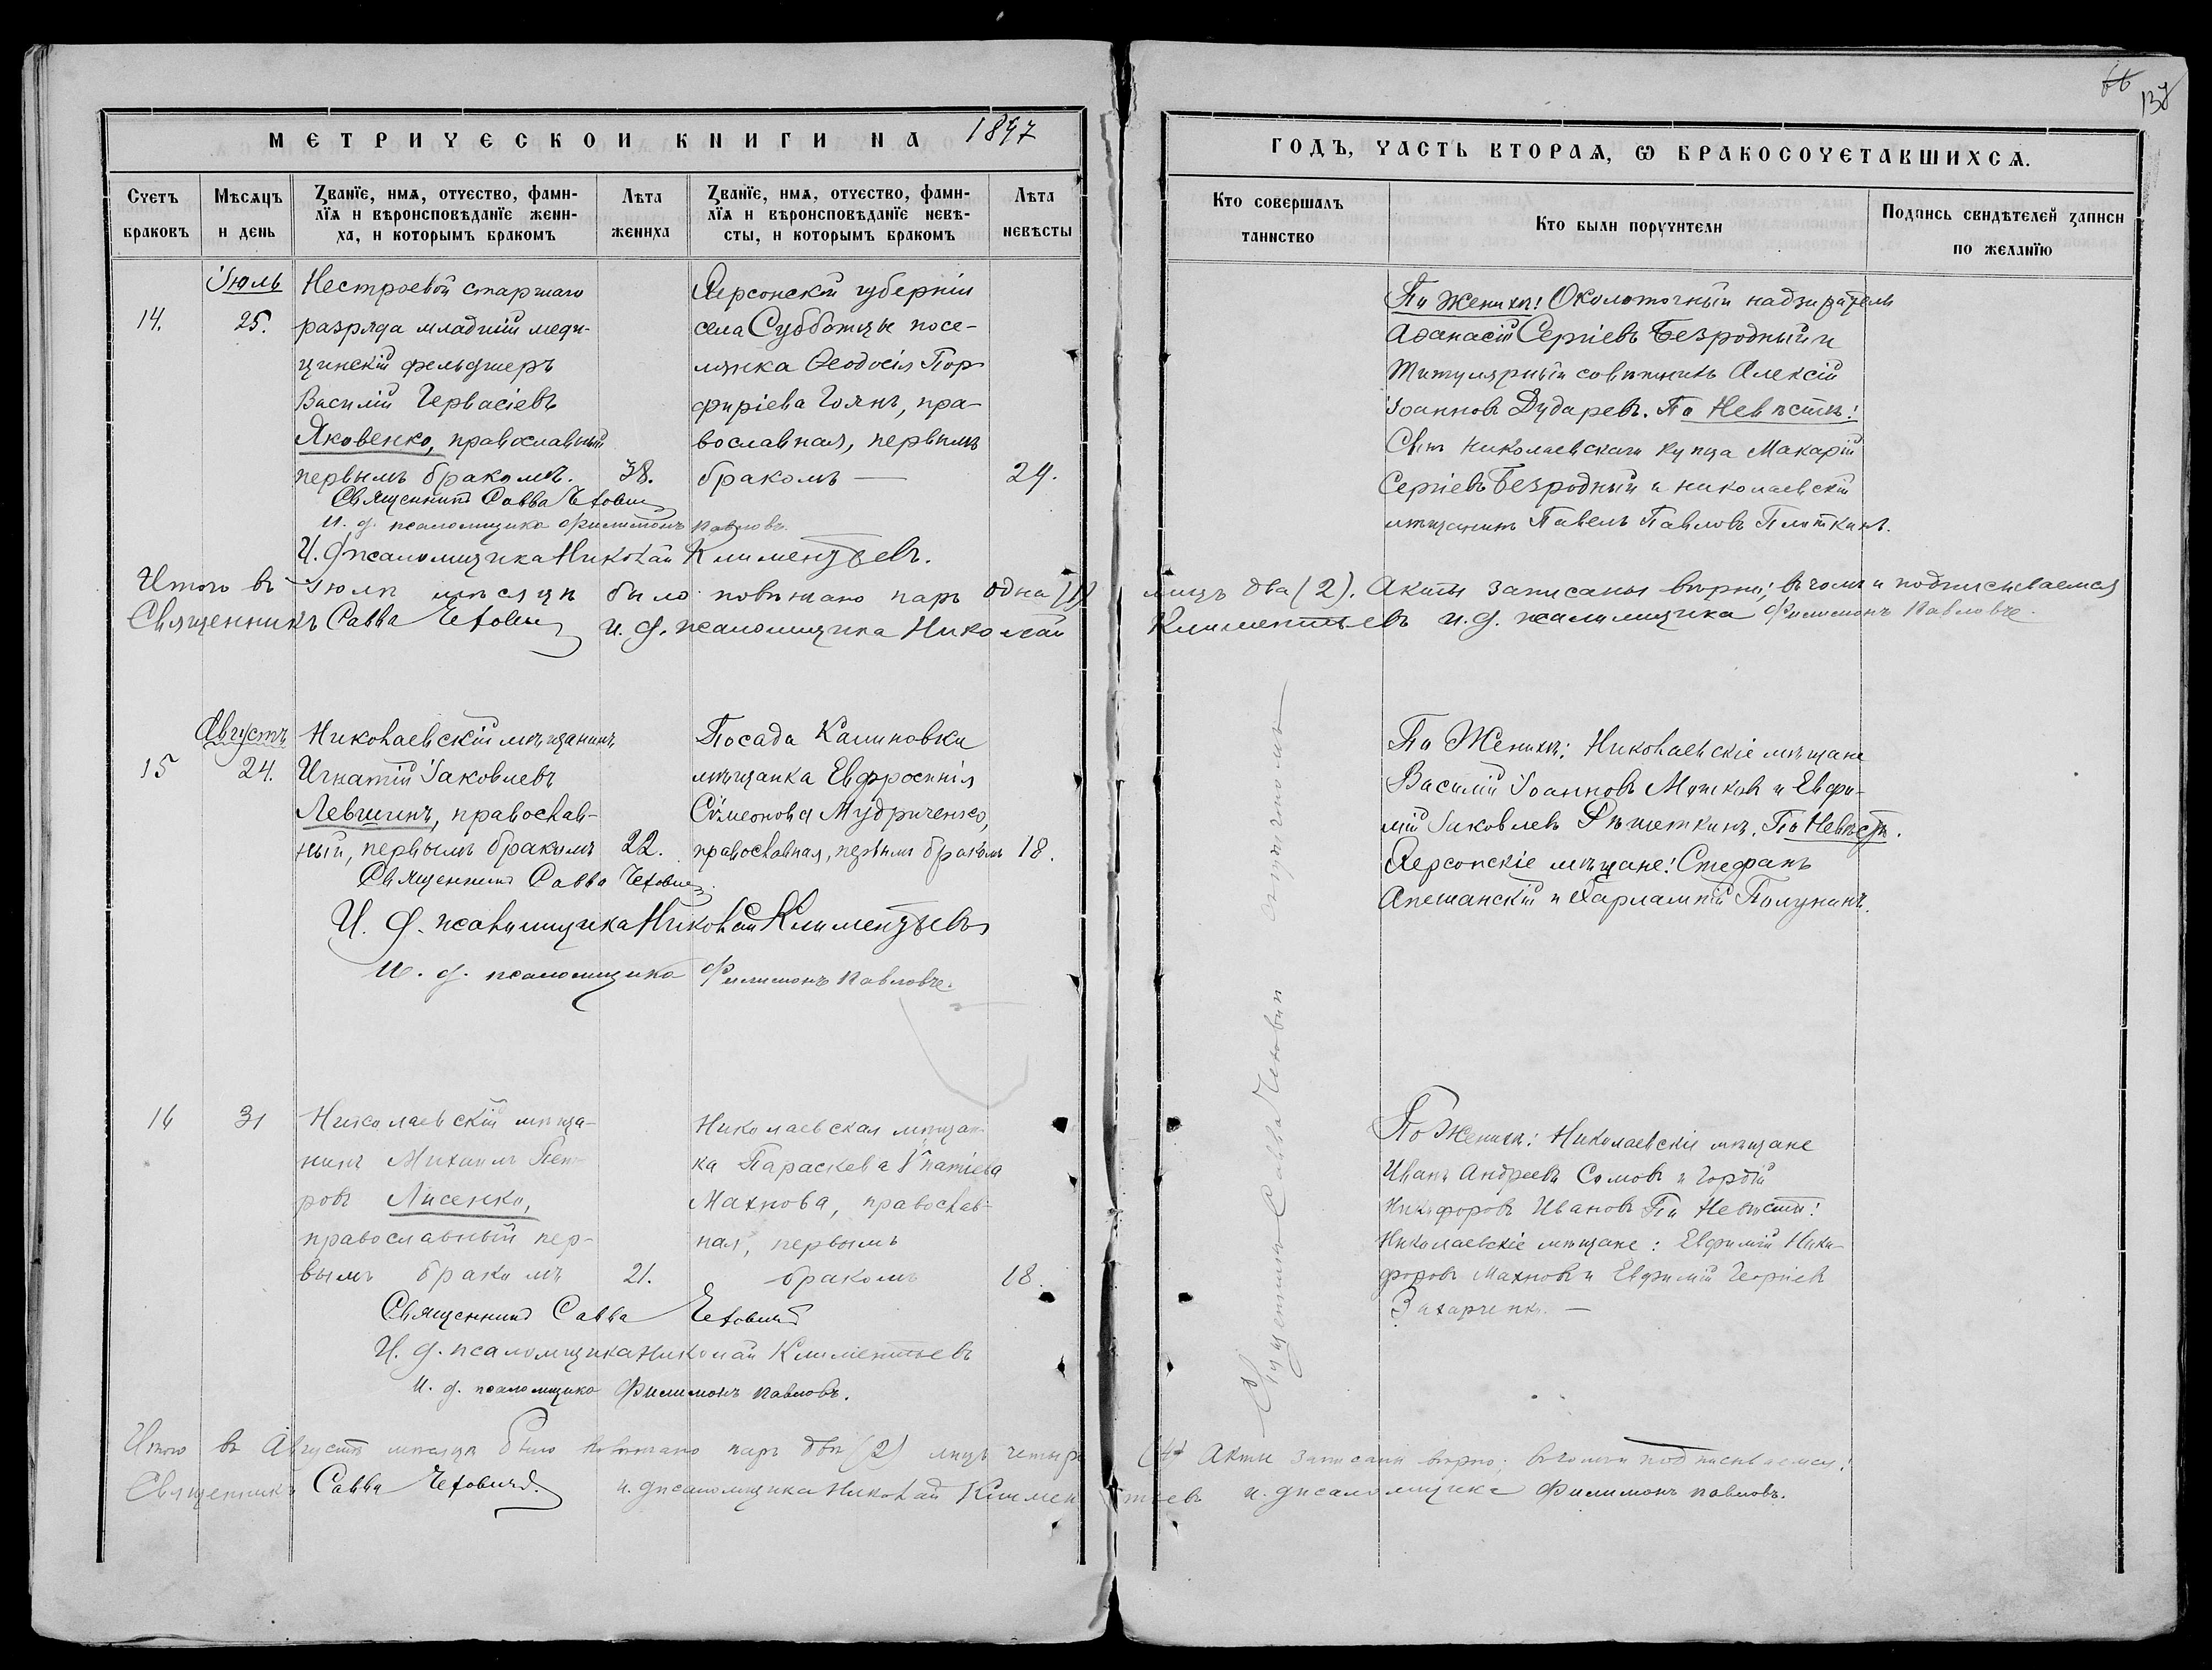 66
138
МЕТРИЧЕСКОЙ КНИГИ НА 1897
ГОДЪ, ЧАСТЬ ВТОРАѦ, Ѡ БРАКОСОЧЕТАВШИХСѦ.
Счетъ браковъ
Мѣсѧцъ и день
Званїе, имѧ, отчество, фами-
лїѧ и вѣроисповѣданїе жени-
ха, и которымъ бракомъ
Лѣта жениха
Званїе, имѧ, отчество, фами-
лїѧ и вѣроисповѣданїе невѣ-
сты, и которымъ бракомъ
Лѣта невѣсты
Кто совершалъ таинство
Кто были поручители
Подпись свидѣтелей записи
по желанїю
14.
Іюль
25.
Нестроевой старшаго
разряда младшій меди-
цинскій фельдшеръ
Василій Гервасіевъ
Яковенко, православный
первымъ бракомъ.
38.
Херсонской губерніи
села Субботцы посе-
лянка Ѳеодосія Пор-
фиріева Гоянъ, пра-
вославная, первымъ
бракомъ —
24.
По Женихѣ: Околоточный надзиратель
Аѳанасій Сергіевъ Безродный и
Титулярный совѣтникъ Алексій
Іоанновъ Дударевъ. По Невѣстѣ:
Сынъ Николаевскаго купца Макарій
Сергіевъ Безродный и николаевскій
мѣщанинъ Павелъ Павловъ Плоткинъ.
Священникъ Савва Чехович
И. д. псаломщика Филимонъ Павловъ.
И. д. псаломщика Николай Климентьевъ.
Итого въ Іюлѣ мѣсяцѣ было повѣнчано паръ одна (1) лицъ два (2). Акты записаны вѣрно; въ чомъ и подписываемся
Священникъ Савва Чехович и. д. псаломщика Николай Климентьевъ и. д. псаломщика Филимонъ Павловъ.
15
Августъ
24.
Николаевскій мѣщанинъ
Игнатій Іаковлевъ
Левшинъ, православ-
ный, первымъ бракомъ
22.
Посада Калиновки
мѣщанка Евфросинія
Сѵмеонова Мудриченко,
православная, первымъ бракомъ
18.
По Женихѣ: Николаевскіе мѣщане
Василій Іоанновъ и Евфи-
мій Іаковлевъ Рѣшеткинъ. По Невѣстѣ.
Херсонскіе мѣщане: Стефанъ
Апешанскій и Харлампій Полунинъ.
Священникъ Савва Чехович
И. д. псаломщика Николай Климентьевъ
И. д. псаломщика Филимонъ Павловъ.
Священникъ Савва Чехович
16
31
Николаевскій мѣща-
нинъ Михаилъ Пет-
ровъ Лисенко,
православный пер-
вымъ бракомъ
21.
Николаевская мѣщан-
ка Параскева Ѵпатіева
Махнова, православ-
ная, первымъ
бракомъ
18.
По Женихѣ: Николаевскіе мѣщане
Иванъ Андреевъ Сомовъ и Гордій
Никифоровъ Ивановъ По Невѣстѣ:
Николаевскіе мѣщане: Евфимій Ники-
форовъ Махновъ и Евфимій Георгіевъ
Захарченко. —
Священникъ Савва Чехович
И. д. псаломщика Николай Климентьевъ
И. д. псаломщика Филимонъ Павловъ.
Итого въ Августѣ мѣсяцѣ было повѣнчано паръ двѣ (2) лицъ четыре (4) Акты записаны вѣрно; въ чомъ и подписываемся:
Священникъ Савва Чеховичъ. и. д псаломщика Николай Климентьевъ и. д псаломщика Филимонъ Павловъ.